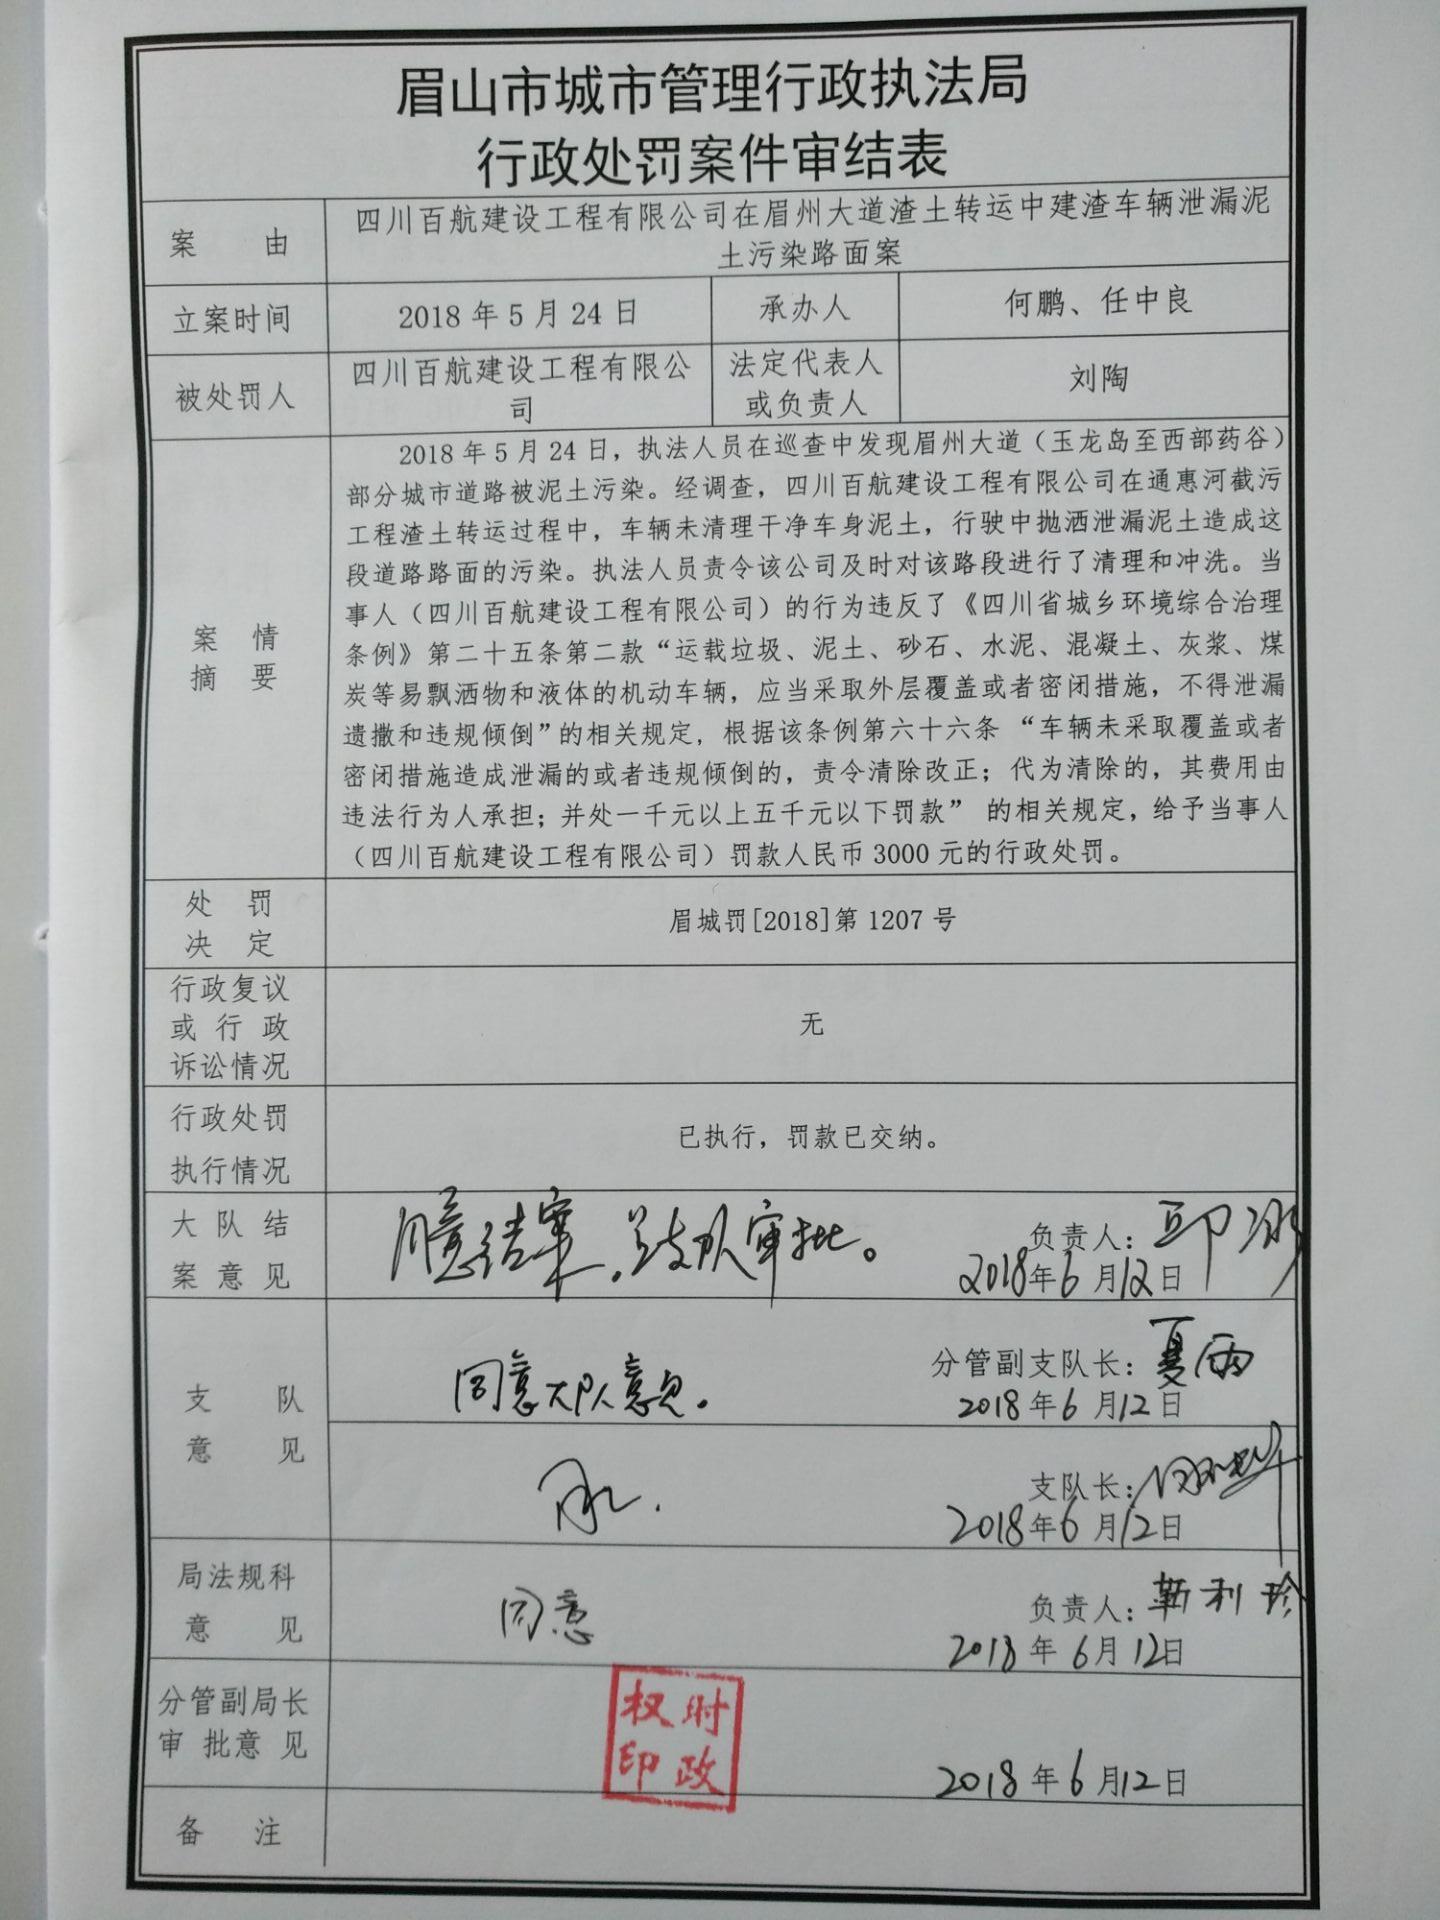 眉山市城市管理行政执法局
行政处罚案件审结表
案 由
四川百航建设工程有限公司在眉州大道渣土转运中建渣车辆泄漏泥
土污染路面案
立案时间
2018年5月24日
承办人
何鹏、任中良
被处罚人
四川百航建设工程有限公
司
法定代表人
或负责人
刘陶
案 情
摘 要
2018年5月24日，执法人员在巡查中发现眉州大道（玉龙岛至西部药谷）
部分城市道路被泥土污染。经调查，四川百航建设工程有限公司在通惠河截污
工程渣土转运过程中，车辆未清理干净车身泥土，行驶中抛洒泄漏泥土造成这
段道路路面的污染。执法人员责令该公司及时对该路段进行了清理和冲洗。当
事人（四川百航建设工程有限公司）的行为违反了《四川省城乡环境综合治理
条例》第二十五条第二款“运载垃圾、泥土、砂石、水泥、混凝土、灰浆、煤
炭等易飘洒物和液体的机动车辆，应当采取外层覆盖或者密闭措施，不得泄漏
遗撒和违规倾倒”的相关规定，根据该条例第六十六条 “车辆未采取覆盖或者
密闭措施造成泄漏的或者违规倾倒的，责令清除改正；代为清除的，其费用由
违法行为人承担；并处一千元以上五千元以下罚款” 的相关规定，给予当事人
（四川百航建设工程有限公司）罚款人民币3000元的行政处罚。
处 罚
决 定
眉城罚[2018]第1207号
行政复议
或 行 政
诉讼情况
无
行政处罚
执行情况
已执行，罚款已交纳。
大 队 结
案 意 见
同意结案。呈支队审批。
负责人：邱
2018年6月12日
支 队
意 见
同意大队意见。
分管副支队长：夏雨
2018年6月12日
支队长：
2018年6月12日
局法规科
意 见
同意
负责人：靳利珍
2018年6月12日
分管副局长
审 批 意 见
时政
权印
2018年6月12日
备 注